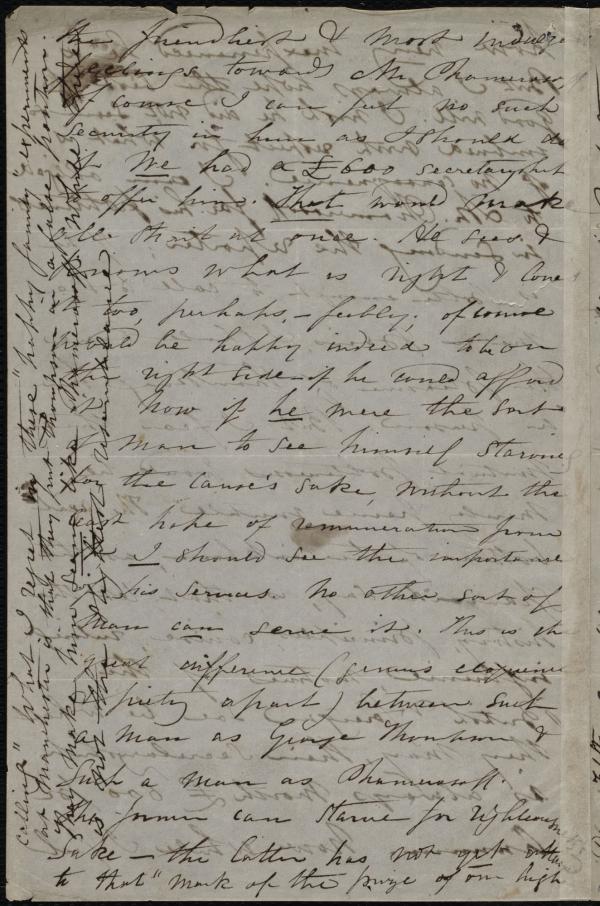 the friendliest & most indulgent
feelings towards Mr. Chamerovzow.
Of course I can feel no such
security in him as I should do
if We had a £600 secretaryship
to offer him. That would make
all that at once. He sees &
knows what is right & loves
it too, perhaps, – feebly; of course
would be happy indeed to be on
the right side – if he could afford
it. Now if he were the sort
of man to see himself starving
for the cause's sake, without the
least hope of remuneration from
it I should see the importance
of his services. No other sort of
man can serve it. This is the
great difference (genius eloquence
& piety apart) between such
a man as George Thompson &
such a man as Chamerovzow.
The former can starve for righteousness
sake – the latter has not yet
to that "mark of the prize of our high
calling." What I regret in these "happy family" experiments
at Manchester is that they put Thompson in a false position.
They make him seem like Chamerovzow,
is not the highest